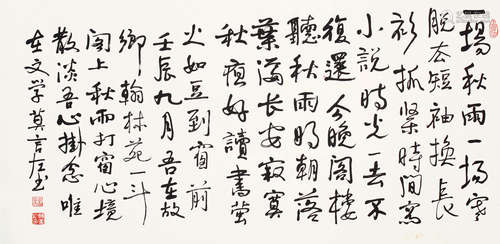 一場秋雨一場寒
脱衣短袖換長
衫抓緊時間寫
小說時光一去不
復還今晚閣樓
聽秋雨明朝落
葉滿長安寂寞
秋 好讀書螢
火如豆到窗前
壬辰九月吾在故
鄉翰林苑一斗
閣上秋雨打窗心境
散淡吾心掛念唯
在文学莫言左书